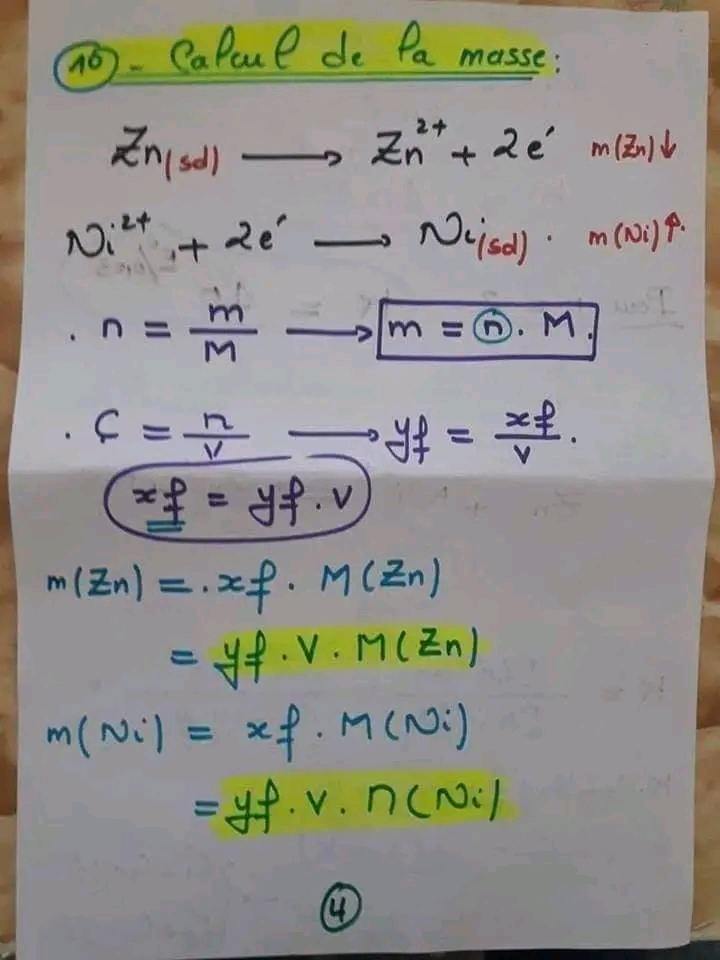 10 - Calcul de la masse :
Zn(sd) ⟶ Zn²⁺ + 2e⁻ m(Zn)↓
Ni²⁺ + 2e⁻ ⟶ Ni(sd) . m(Ni)↑.
. n = m/M ⟶ m = n . M.
. C = n/V ⟶ yf = xf/V .
xf = yf . V
m(Zn) = . xf . M(Zn)
= yf . V . M(Zn)
m(Ni) = xf . M(Ni)
= yf . V . M(Ni)
4